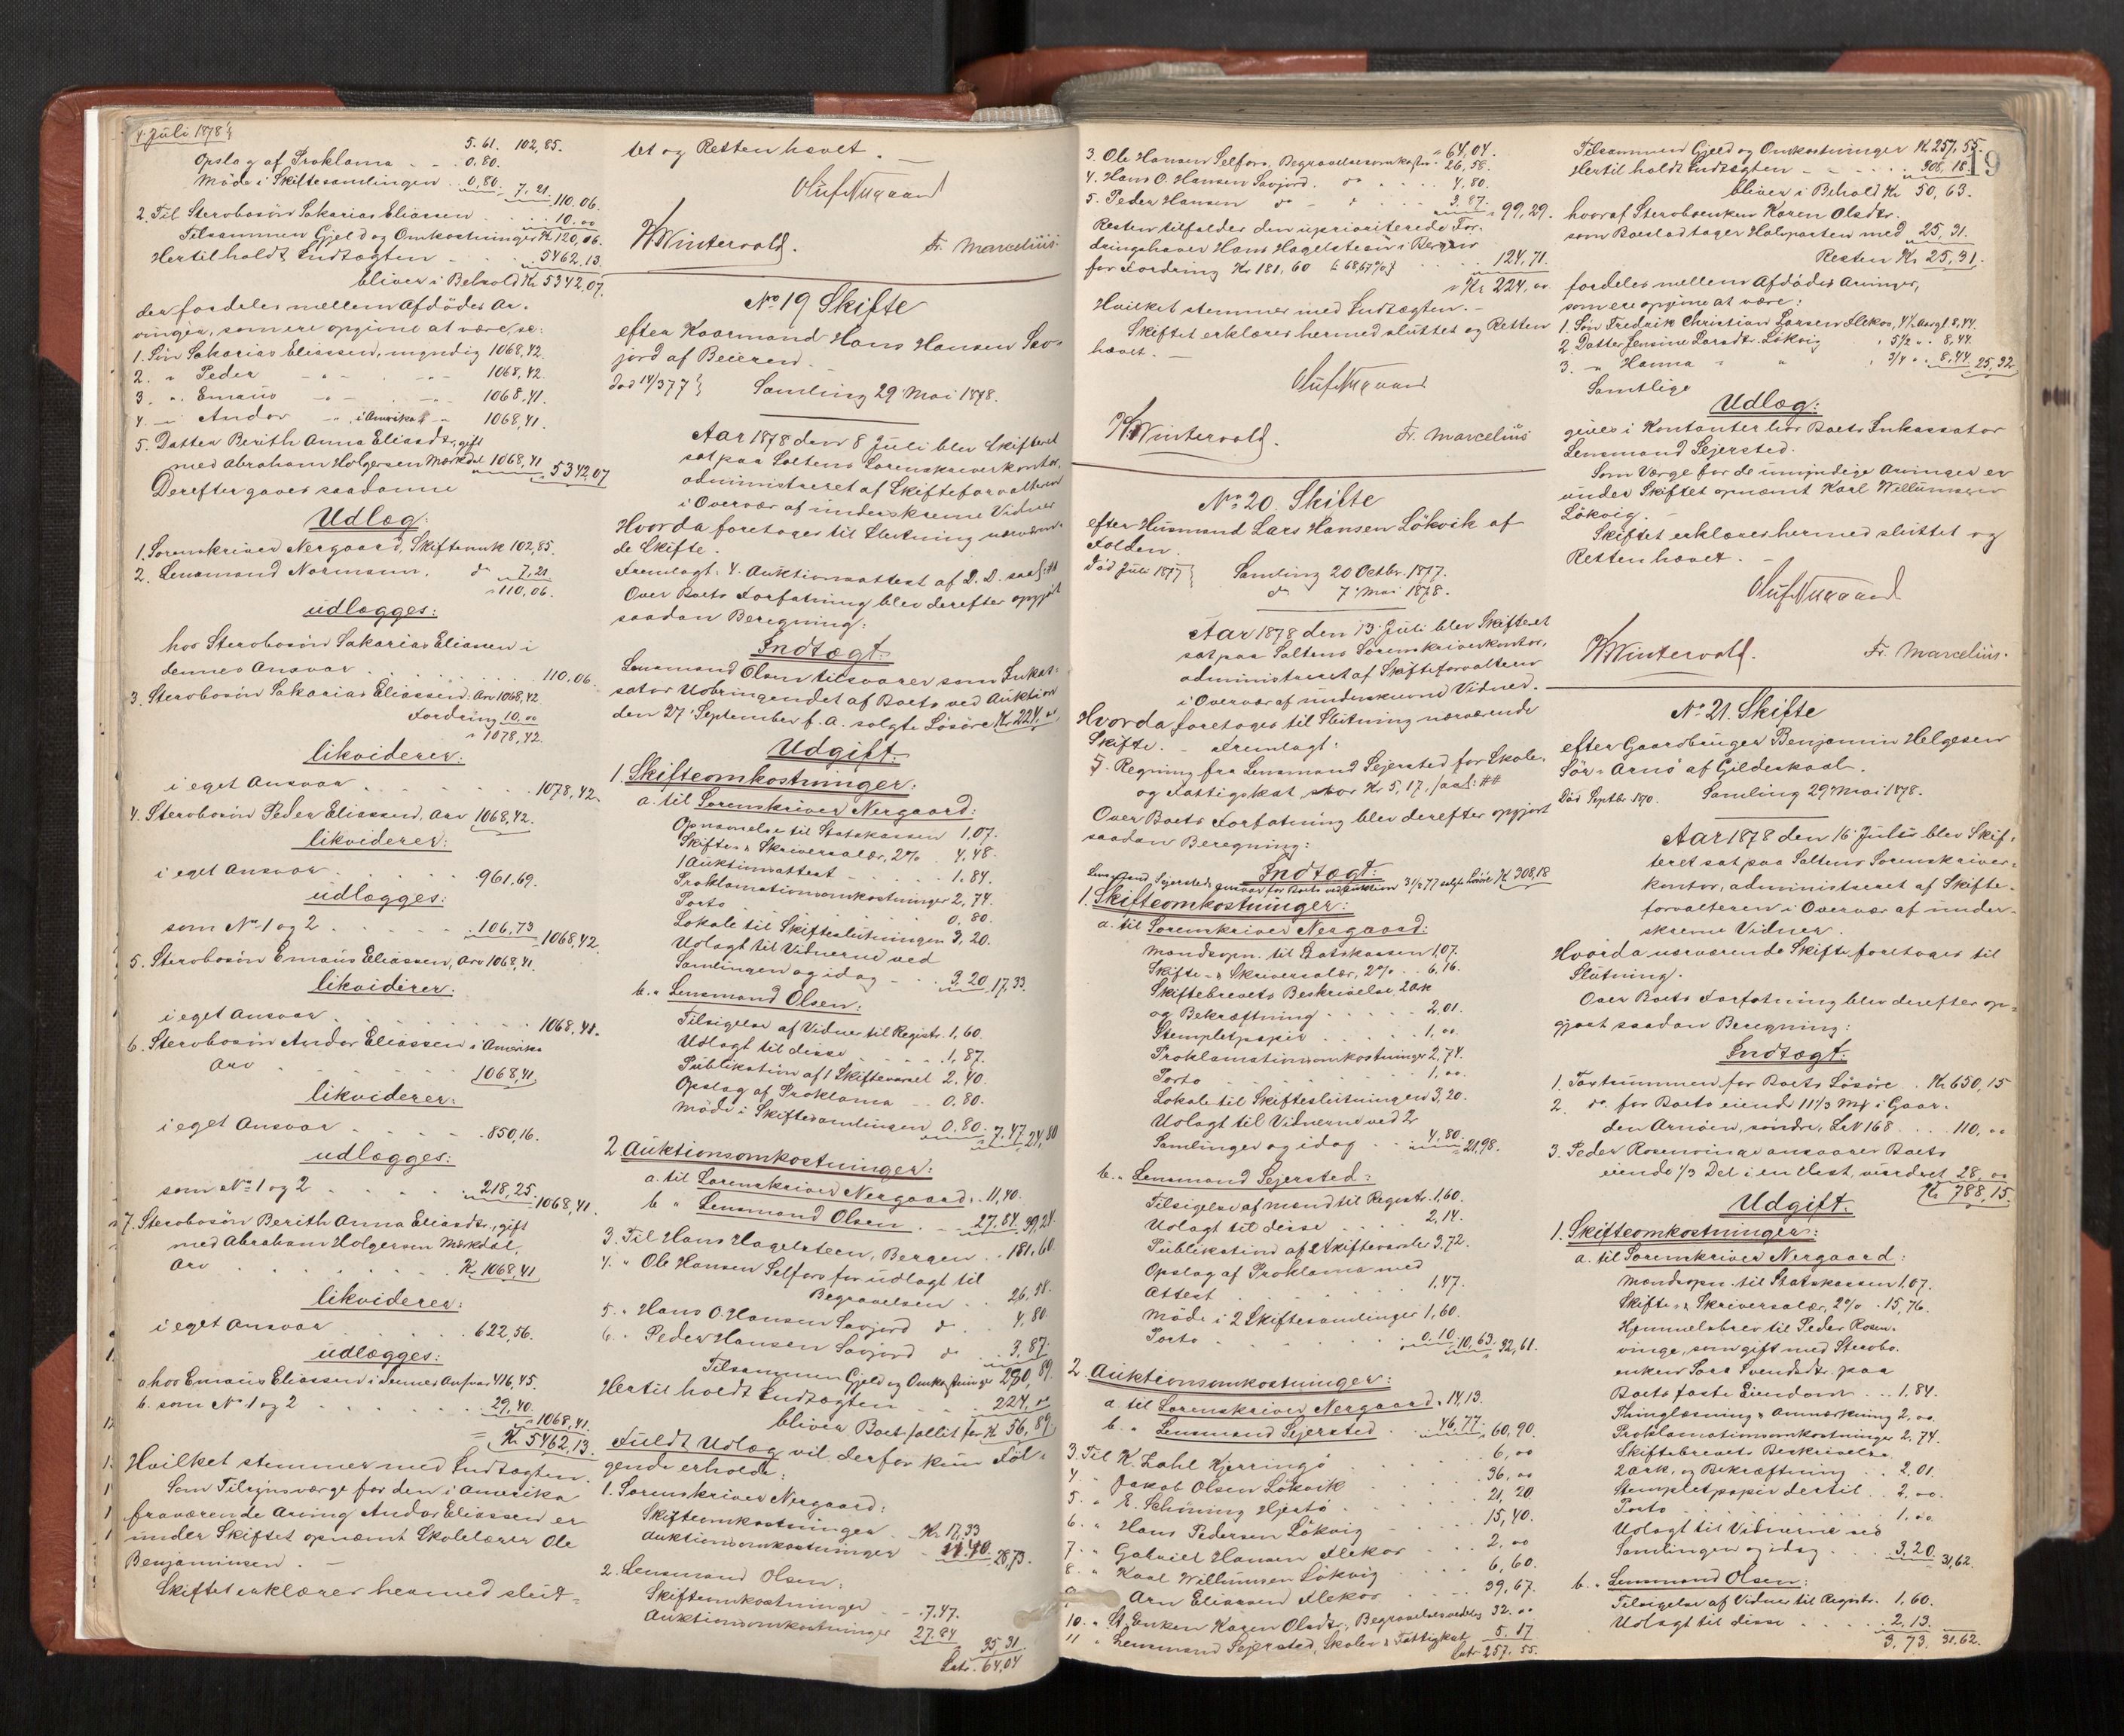 4. Juli 1878
5.61. 102,85.
Opslag af Proklama . . 0.80.
Møde i Skiftesamlingen . 0,80. 7,21
110.06.
2. Til Stervbosön Sakarias Eliassen . . 10.00
Tilsammen Gjeld og Omkostninger Kr 120,06.
Hertil holdt Indtægten . . 5462.13.
bliver i Behold Kr 5342,07.
der fordeles mellem Afdødes Ar-
vinger, som ere opgivne at være, se:
1. Sön Sakarias Eliassen, myndig 1068,42.
2. " Peder 1068,42.
3. " Emaus 1068,41.
4. " Andor " i Amerika 1068,41.
5. Datter Berith Anna Eliasdtr, gift
med Abraham Holgersen Mørkdal 1068,41 5342,07
Derefter gaves saadanne
Udlæg:
1. Sorenskriver Nergaard, Skifteomk 102,85.
2. Lensmand Normann, do 7,21
110,06.
udlægges:
hos Stervbosön Sakarias Eliassen i
dennes Ansvar . . 110.06.
3. Stervbosön Sakarias Eliassen: Arv 1068,42
Fordring 10,00
1078,42.
likviderer:
i eget Ansvar . . 1078,42.
4. Stervbosön Peder Eliassen, Arv 1068,42.
likviderer:
i eget Ansvar . . 961,69.
udlægges:
som No 1 og 2 . . 106,73 1068,42.
5. Stervbosön Emaus Eliassen, Arv 1068,41.
likviderer:
i eget Ansvar . . 1068,41.
6. Stervbosön Andor Eliassen i Amerika
Arv . . 1068,41
likviderer:
i eget Ansvar . . 850,16.
udlægges:
som No 1 og 2 . . 218,25 1068,41.
7. Stervbosön Berith Anna Eliasdtr, gift
med Abraham Holgersen Mørkdal,
Arv . . Kr 1068,41
likviderer:
i eget Ansvar . . 622,56.
udlægges:
a hos Emaus Eliassen i dennes Ansvar 416,45.
b. som No 1 og 2 . . 29,40.
1068,41.
Kr 5462,13.
Hvilket stemmer med Indtægten.
Som Tilsynsværge for den i Amerika
fraværende Arving Andor Eliassen er
under Skiftet opnævnt Skolelærer Ole
Benjaminsen. —
Skiftet erklæres hermed slut-
tet og Retten hævet. —
Oluf Nergaard
H Wintervold. Fr. Marcelius
No 19 Skifte
efter Kaarmand Hans Hansen Sav-
jord af Beieren.
Död 14/3 77 } Samling 29 Mai 1878.
Aar 1878 den 8 Juli blev Skifteret
sat paa Saltens Sorenskriverkontor,
administreret af Skifteforvalteren
i Overvær af underskrevne Vidner
Hvorda foretoges til Slutning nærværen-
de Skifte.
Fremlagt: 4. Auktionsattest af D. D. saal: ##
Over Boets Forfatning blev derefter opgjort
saadan Beregning:
Indtægt:
Lensmand Olsen tilsvarer som Inkas-
sator Udbringendet af Boets ved Auktion
den 27 September f. A. solgte Lösöre Kr 224,00
Udgift:
1. Skifteomkostninger:
a. til Sorenskriver Nergaard:
Opnævnelse til Statskassen 1,07.
Skifte- & Skriversalær, 2% . 4,48.
1 Auktionsattest . . 1.84.
Proklamationsomkostninger 2,74.
Porto . . 0,80.
Lokale til Skifteslutningen 3,20.
Udlagt til Vidnerne ved
Samlingen og idag . . 3,20 17,33.
b. " Lensmand Olsen:
Tilsigelse af Vidner til Registr. 1,60.
Udlagt til disse . . 1,87.
Publikation af 1 Skiftevarsel 2,40.
Opslag af Proklama . . 0,80.
Møde i Skiftesamlingen 0,80. 7,47. 24,80
2 Auktionsomkostninger:
a. til Sorenskriver Nergaard . 11,40.
b " Lensmand Olsen . . 27.84. 39,24.
3. Til Hans Hagelsteen, Bergen . . 181,60
4. " Ole Hansen Selfors for udlagt til
Begravelsen . . 26,58.
5. " Hans O. Hansen Savjord do . 4,80
6. " Peder Hansen Savjord do . 3,87.
Tilsammen Gjeld og Omkostninger 280,89.
Hertil holdt Indtægten . . 224,00
bliver Boet fallit for Kr 56,89.
Fuldt Udlæg vil derfor kun Föl-
gende erholde:
1. Sorenskriver Nergaard:
Skifteomkostninger . Kr. 17,33
Auktionsomkostninger . 11.40. 28,73.
2. Lensmand Olsen:
Skifteomkostninger . . 7,47.
Auktionsomkostninger 27.84
35,31.
Latr. 64,04
19
3. Ole Hansen Selfors, Begravelsesomkostn. 64,04.
26,58.
4. Hans O. Hansen Savjord, do . . 4,80.
5. Peder Hansen do . . 3,87. 99,29.
Resten tilfalder den uprioriterede For-
dringshaver Hans Hagelsteen i Bergen
for Fordring Kr 181,60 (: 68,67%) . . 124,71.
Kr 224,00
Hvilket stemmer med Indtægten. —
Skiftet erklæres hermed sluttet og Retten
hævet. —
Oluf Nergaard
H Wintervold. Fr. Marcelius
No 20. Skifte
efter Husmand Lars Hansen Lökvik af
Folden.
Död Juli 1877 } Samling 20 Octbr. 1877.
do 7 Mai 1878.
Aar 1878 den 13 Juli blev Skifteret
sat paa Saltens Sorenskriverkontor,
administreret af Skifteforvalteren
i Overvær af underskrevne Vidner.
Hvorda foretoges til Slutning nærværende
Skifte. — Fremlagt:
5. Regning fra Lensmand Sejersted for Skole-
og Fattigskat stor Kr 5,17, saal: ##
Over Boets Forfatning blev derefter opgjort
saadan Beregning:
Indtægt:
Lensmand Sejersted ansvar for Boets ved Auktion 31/10 77 solgte Lösöre Kr. 308,18
1. Skifteomkostninger:
a. til Sorenskriver Nergaard:
Mandsopn. til Statskassen 1,07.
Skifte- & Skriversalær, 2% . . 6,16.
Skiftebrevets Beskrivelse, 2 Ark
og Bekræftning . . 2,01.
Stempletpapir . . 1,00.
Proklamationsomkostninger 2,74.
Porto . . 1,00.
Lokale til Skifteslutningen 3,20.
Udlagt til Vidnerne ved 2
Samlinger og idag . . 4,80. 21,98.
b. " Lensmand Sejersted:
Tilsigelse af Mænd til Registr. 1,60.
Udlagt til disse . . 2,14.
Publikation af 2 Skiftevarsler 3,72.
Opslag af Proklama med
Attest . . 1,47.
Møde i 2 Skiftesamlinger 1,60.
Porto . . 0.10. 10,63. 32,61.
2. Auktionsomkostninger:
a. til Sorenskriver Nergaard . 14,13.
b. " Lensmand Sejersted . 46,77. 60,90.
3. Til K. Zahl Kjerringö . . 6,00
4. " Jakob Olsen Lökvik . . 36,00
5. " E. Schöning Hjertö . . 21,20.
6. " Hans Pedersen Lökvig . . 15,40.
7. " Gabriel Hansen Flekos . . 2,00
8. " Karl Willumsen Lökvig . . 6,60.
9. Arn Eliassen Flekos . . 39,67.
10. " St. Enken Karen Olsdtr, Begravelsesudlæg 32.00
11 " Lensmand Sejersted, Skole- & Fattigskat 5.17
Latr. 257.55.
Tilsammen Gjeld og Omkostninger Kr. 257,55.
Hertil holdt Indtægten . . 308,18.
bliver i Behold Kr 50,63.
hvoraf Stervboenken Karen Olsdtr.
som Boeslod tager Halvparten med 25,31.
Resten Kr 25,31.
fordeles mellem Afdödes Arvinger,
som ere opgivne at være:
1. Sön Fredrik Christian Larsen Flekos, 4½ Aar gl. 8,44.
2. Datter Jensine Larsdtr. Lökvig " 5½ " . 8,44.
3. " Hanna " " 3/4 " . 8,44. 25,32.
Samtlige
Udlæg:
gives i Kontanter hos Boets Inkassator
Lensmand Sejersted.
Som Værge for de umyndige Arvinger er
under Skiftet opnævnt Karl Willumsen
Lökvig. —
Skiftet erklæres hermed sluttet og
Retten hævet. —
Oluf Nergaard
H Wintervold. Fr. Marcelius.
No 21. Skifte
efter Gaardbruger Benjamin Helgesen
Sör-Arnö af Gildeskaal.
Död Septbr 1870. Samling 29 Mai 1878.
Aar 1878 den 16 Juli blev Skif-
teret sat paa Saltens Sorenskriver-
kontor, administreret af Skifte-
forvalteren i Overvær af under-
skrevne Vidner.
Hvorda nærværende Skifte foretoges til
Slutning.
Over Boets Forfatning blev derefter op-
gjort saadan Beregning:
Indtægt:
1. Taxtsummen for Boets Lösöre . Kr. 650,15
2. do. for Boets eiende 11 1/3 Mk i Gaar-
den Arnöen, söndre, LN 168 . . 110,00
3. Peder Rosenvinge ansvarer Boets
eiende 1/3 Del i en Hest, vurderet 28,00
Kr 788,15.
Udgift:
1. Skifteomkostninger:
a. til Sorenskriver Nergaard:
Mandsopn. til Statskassen 1,07.
Skifte- & Skriversalær, 2% . 15,76.
Hjemmelsbrev til Peder Rosen-
vinge, som gift med Stervbo-
enken Sara Svendsdtr. paa
Boets faste Eiendom . . 1.84.
Thinglæsning & Anmærkning 2,00.
Proklamationsomkostninger 2.74.
Skiftebrevets Beskrivelse
2 Ark, og Bekræftning . . 2,01.
Stempletpapir dertil . . 2,00.
Porto . . 1,00
Udlagt til Vidnerne ved
Samlingen og idag . . 3,20 31,62.
b. " Lensmand Olsen:
Tilsigelse af Vidner til Registr. 1,60.
Udlagt til disse . . 2,13.
3,73. 31,62.